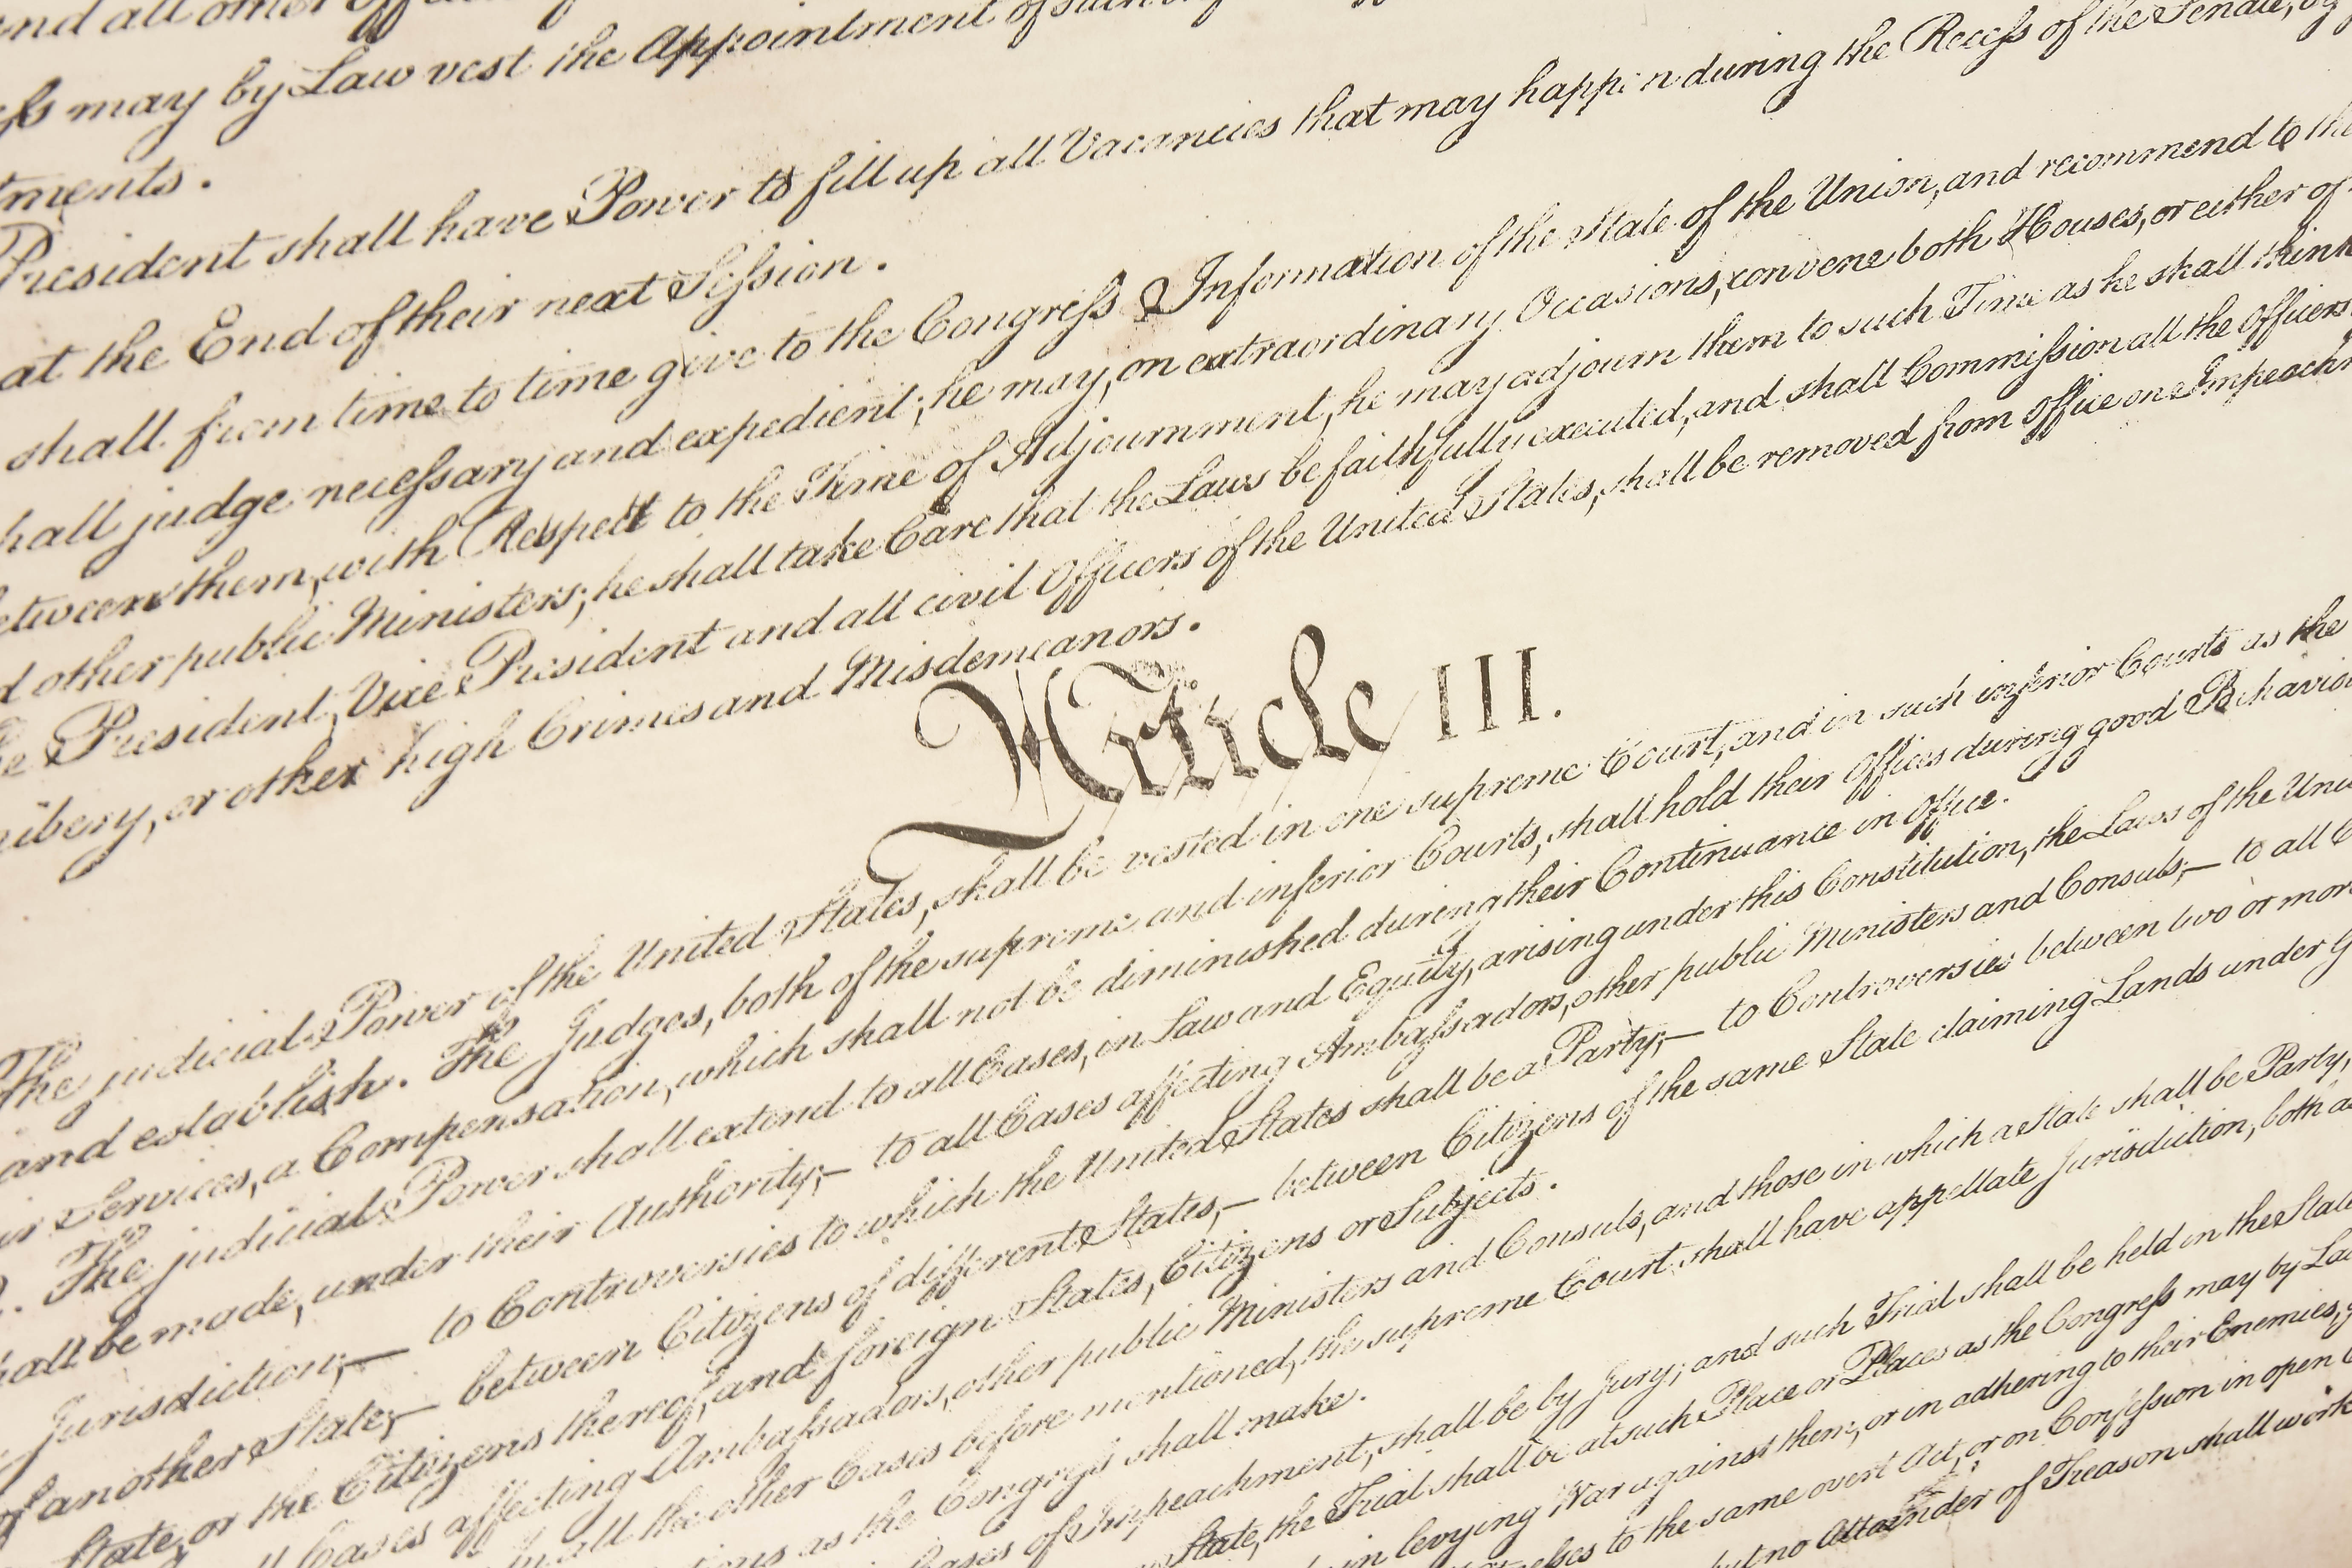 and all other
may by Law vest the Appointment of such
tments.
President shall have Power to fill up all Vacancies that may happen during the Recess of the Senate, by
at the End of their next Session.
shall from time to time give to the Congress Information of the State of the Union, and recommend to the
hall judge necessary and expedient; he may, on extraordinary Occasions, convene both Houses, or either of
etween them, with Respect to the Time of Adjournment, he may adjourn them to such Time as he shall think
d other public Ministers; he shall take Care that the Laws be faithfully executed, and shall Commission all the Officers
e President, Vice President and all civil Officers of the United States, shall be removed from Office on Impeachm
ribery, or other high Crimes and Misdemeanors.
Article III.
The judicial Power of the United States, shall be vested in one supreme Court, and in such inferior Courts as the
and establish. The Judges, both of the supreme and inferior Courts, shall hold their Offices during good Behavio
ir Services, a Compensation, which shall not be diminished during their Continuance in Office.
2. The judicial Power shall extend to all Cases, in Law and Equity, arising under this Constitution, the Laws of the Uni
hall be made, under their Authority;— to all Cases affecting Ambassadors, other public Ministers and Consuls;— to all C
Jurisdiction;— to Controversies to which the United States shall be a Party;— to Controversies between two or more
of another State;— between Citizens of different States,— between Citizens of the same State claiming Lands under G
State, or the Citizens thereof, and foreign States, Citizens or Subjects.
ll Cases affecting Ambassadors, other public Ministers and Consuls, and those in which a State shall be Party,
all the other Cases before mentioned, the supreme Court shall have appellate Jurisdiction, both as
ions as the Congress shall make.
Cases of Impeachment, shall be by Jury; and such Trial shall be held in the State
State, the Trial shall be at such Place or Places as the Congress may by Law
in levying War against them, or in adhering to their Enemies, g
to the same overt Act, or on Confession in open C
but no Attainder of Treason shall work